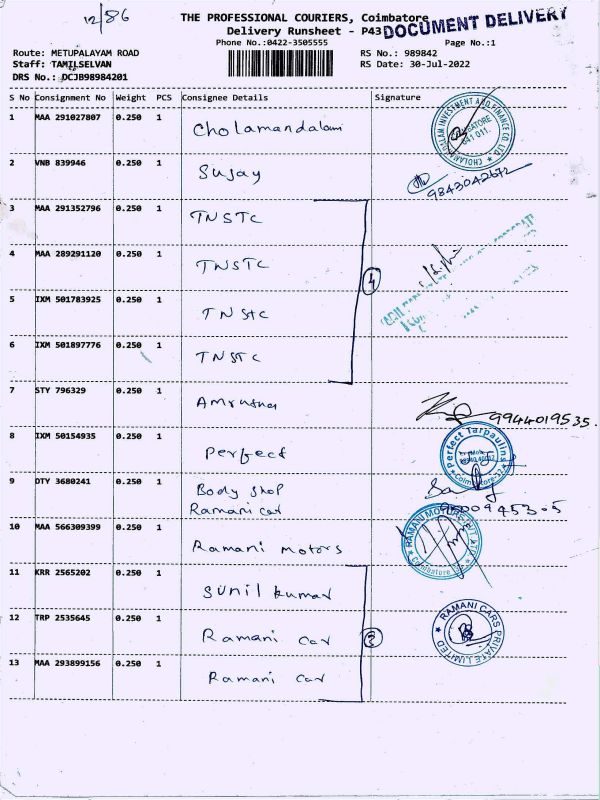 12/86
THE PROFESSIONAL COURIERS, Coimbatore
Delivery Runsheet - P43
DOCUMENT DELIVERY
Phone No.:0422-3505555
Page No.:1
Route: METUPALAYAM ROAD
RS No.: 989842
Staff: TAMILSELVAN
RS Date: 30-Jul-2022
DRS No.: DCJB98984201
S No Consignment No Weight PCS Consignee Details Signature
1 MAA 291027807 0.250 1 Cholamandalam
CHOLAMANDALAM INVESTMENT AND FINANCE CO. LTD
641 011.
2 VNB 839946 0.250 1 Sujay
3 MAA 291352796 0.250 1 TNSTC
4 MAA 289291120 0.250 1 TNSTC
4
5 IXM 501783925 0.250 1 TNStC
6 IXM 501897776 0.250 1 TNSTC
7 STY 796329 0.250 1
9944019535.
8 IXM 50154935 0.250 1 Perfect
Perfect Tarpaulins
9 DTY 3680241 0.250 1 Body shop
Ramani car
10 MAA 566309399 0.250 1 Ramani motors
11 KRR 2565202 0.250 1 Sunil kumar
12 TRP 2535645 0.250 1 Ramani car
3
RAMANI CARS PRIVATE LIMITED
13 MAA 293899156 0.250 1 Ramani car